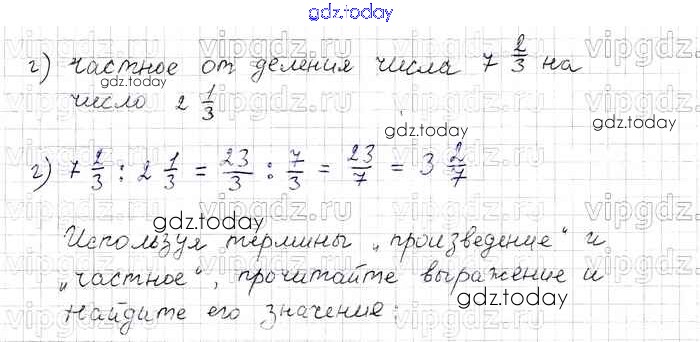 gdz.today
г) частное от деления числа 7 2/3 на
gdz.today
число 2 1/3
gdz.today
gdz.today
г) 7 2/3 : 2 1/3 = 23/3 : 7/3 = 23/7 = 3 2/7
gdz.today
Используя термины „произведение“ и
„частное“, прочитайте выражение и
gdz.today
найдите его значение:
vipgdz.ru